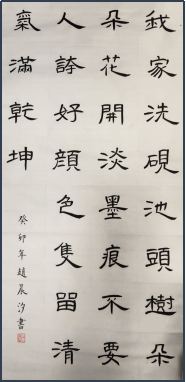 我家洗硯池頭樹朵
朵花開淡墨痕不要
人誇好顏色隻留清
氣滿乾坤
癸卯年趙晨汐書